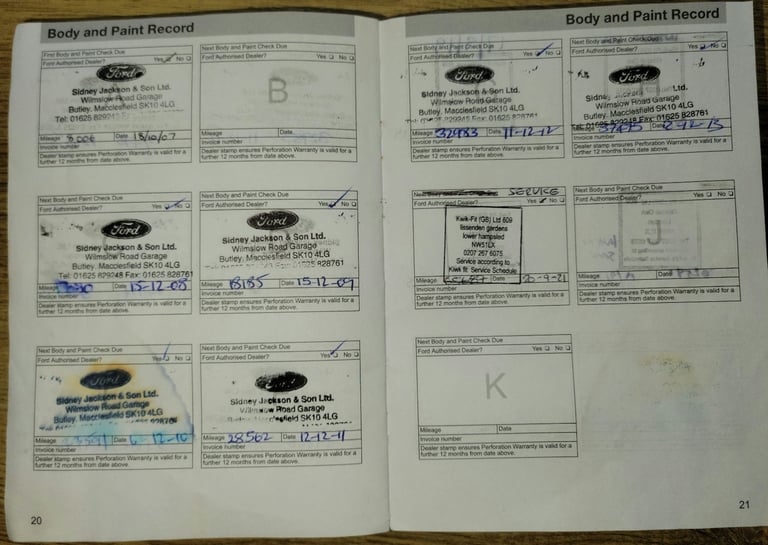 Body and Paint Record
First Body and Paint Check Due
Ford Authorised Dealer? Yes No
Ford
Sidney Jackson & Son Ltd.
Wilmslow Road Garage
Butley, Macclesfield SK10 4LG
Tel: 01625 829
Mileage Date 18/10/07
Invoice number
Dealer stamp ensures Perforation Warranty is valid for a
further 12 months from date above.
Next Body and Paint Check Due
Ford Authorised Dealer? Yes No
B
Mileage Date
Invoice number
Dealer stamp ensures Perforation Warranty is valid for a
further 12 months from date above.
Next Body and Paint Check Due
Ford Authorised Dealer? Yes No
Ford
Sidney Jackson & Son Ltd.
Wilmslow Road Garage
Butley, Macclesfield SK10 4LG
Tel: 01625 829248 Fax: 01625 828761
Mileage Date 15-12-08
Invoice number
Dealer stamp ensures Perforation Warranty is valid for a
further 12 months from date above.
Next Body and Paint Check Due
Ford Authorised Dealer? Yes No
Ford
Sidney Jackson & Son Ltd.
Wilmslow Road Garage
Butley, Macclesfield SK10 4LG
Fax: 01625 828761
Mileage 18185 Date 15-12-09
Invoice number
Dealer stamp ensures Perforation Warranty is valid for a
further 12 months from date above.
Next Body and Paint Check Due
Ford Authorised Dealer? Yes No
Ford
Sidney Jackson & Son Ltd.
Wilmslow Road Garage
Butley, Macclesfield SK10 4LG
Mileage Date 6-12-10
Invoice number
Dealer stamp ensures Perforation Warranty is valid for a
further 12 months from date above.
Next Body and Paint Check Due
Ford Authorised Dealer? Yes No
Sidney Jackson & Son Ltd.
Wilmslow Road Garage
Macclesfield SK10 4LG
Mileage 28562 Date 12-12-11
Invoice number
Dealer stamp ensures Perforation Warranty is valid for a
further 12 months from date above.
20
Body and Paint Record
Next Body and Paint Check Due
Ford Authorised Dealer? Yes No
Ford
Sidney Jackson & Son Ltd.
Wilmslow Road Garage
Butley, Macclesfield SK10 4LG
Tel: 01625 829248 Fax: 01625 828761
Mileage 32983 Date 11-12-12
Invoice number
Dealer stamp ensures Perforation Warranty is valid for a
further 12 months from date above.
Next Body and Paint Check Due
Ford Authorised Dealer? Yes No
Ford
Sidney Jackson & Son Ltd.
Wilmslow Road Garage
Butley, Macclesfield SK10 4LG
Tel: 01625 829248 Fax: 01625 828761
Mileage Date 2-12-13
Invoice number
Dealer stamp ensures Perforation Warranty is valid for a
further 12 months from date above.
SERVICE
Ford Authorised Dealer? Yes No
Kwik-Fit (GB) Ltd 609
lissenden gardens
lower hampsted
NW51LX
0207 267 6075
Service according to
Kwik fit Service Schedule
Mileage Date 20-9-21
Invoice number
Dealer stamp ensures Perforation Warranty is valid for a
further 12 months from date above.
Next Body and Paint Check Due
Ford Authorised Dealer? Yes No
J
Mileage Date
Invoice number
Dealer stamp ensures Perforation Warranty is valid for a
further 12 months from date above.
Next Body and Paint Check Due
Ford Authorised Dealer? Yes No
K
Mileage Date
Invoice number
Dealer stamp ensures Perforation Warranty is valid for a
further 12 months from date above.
21